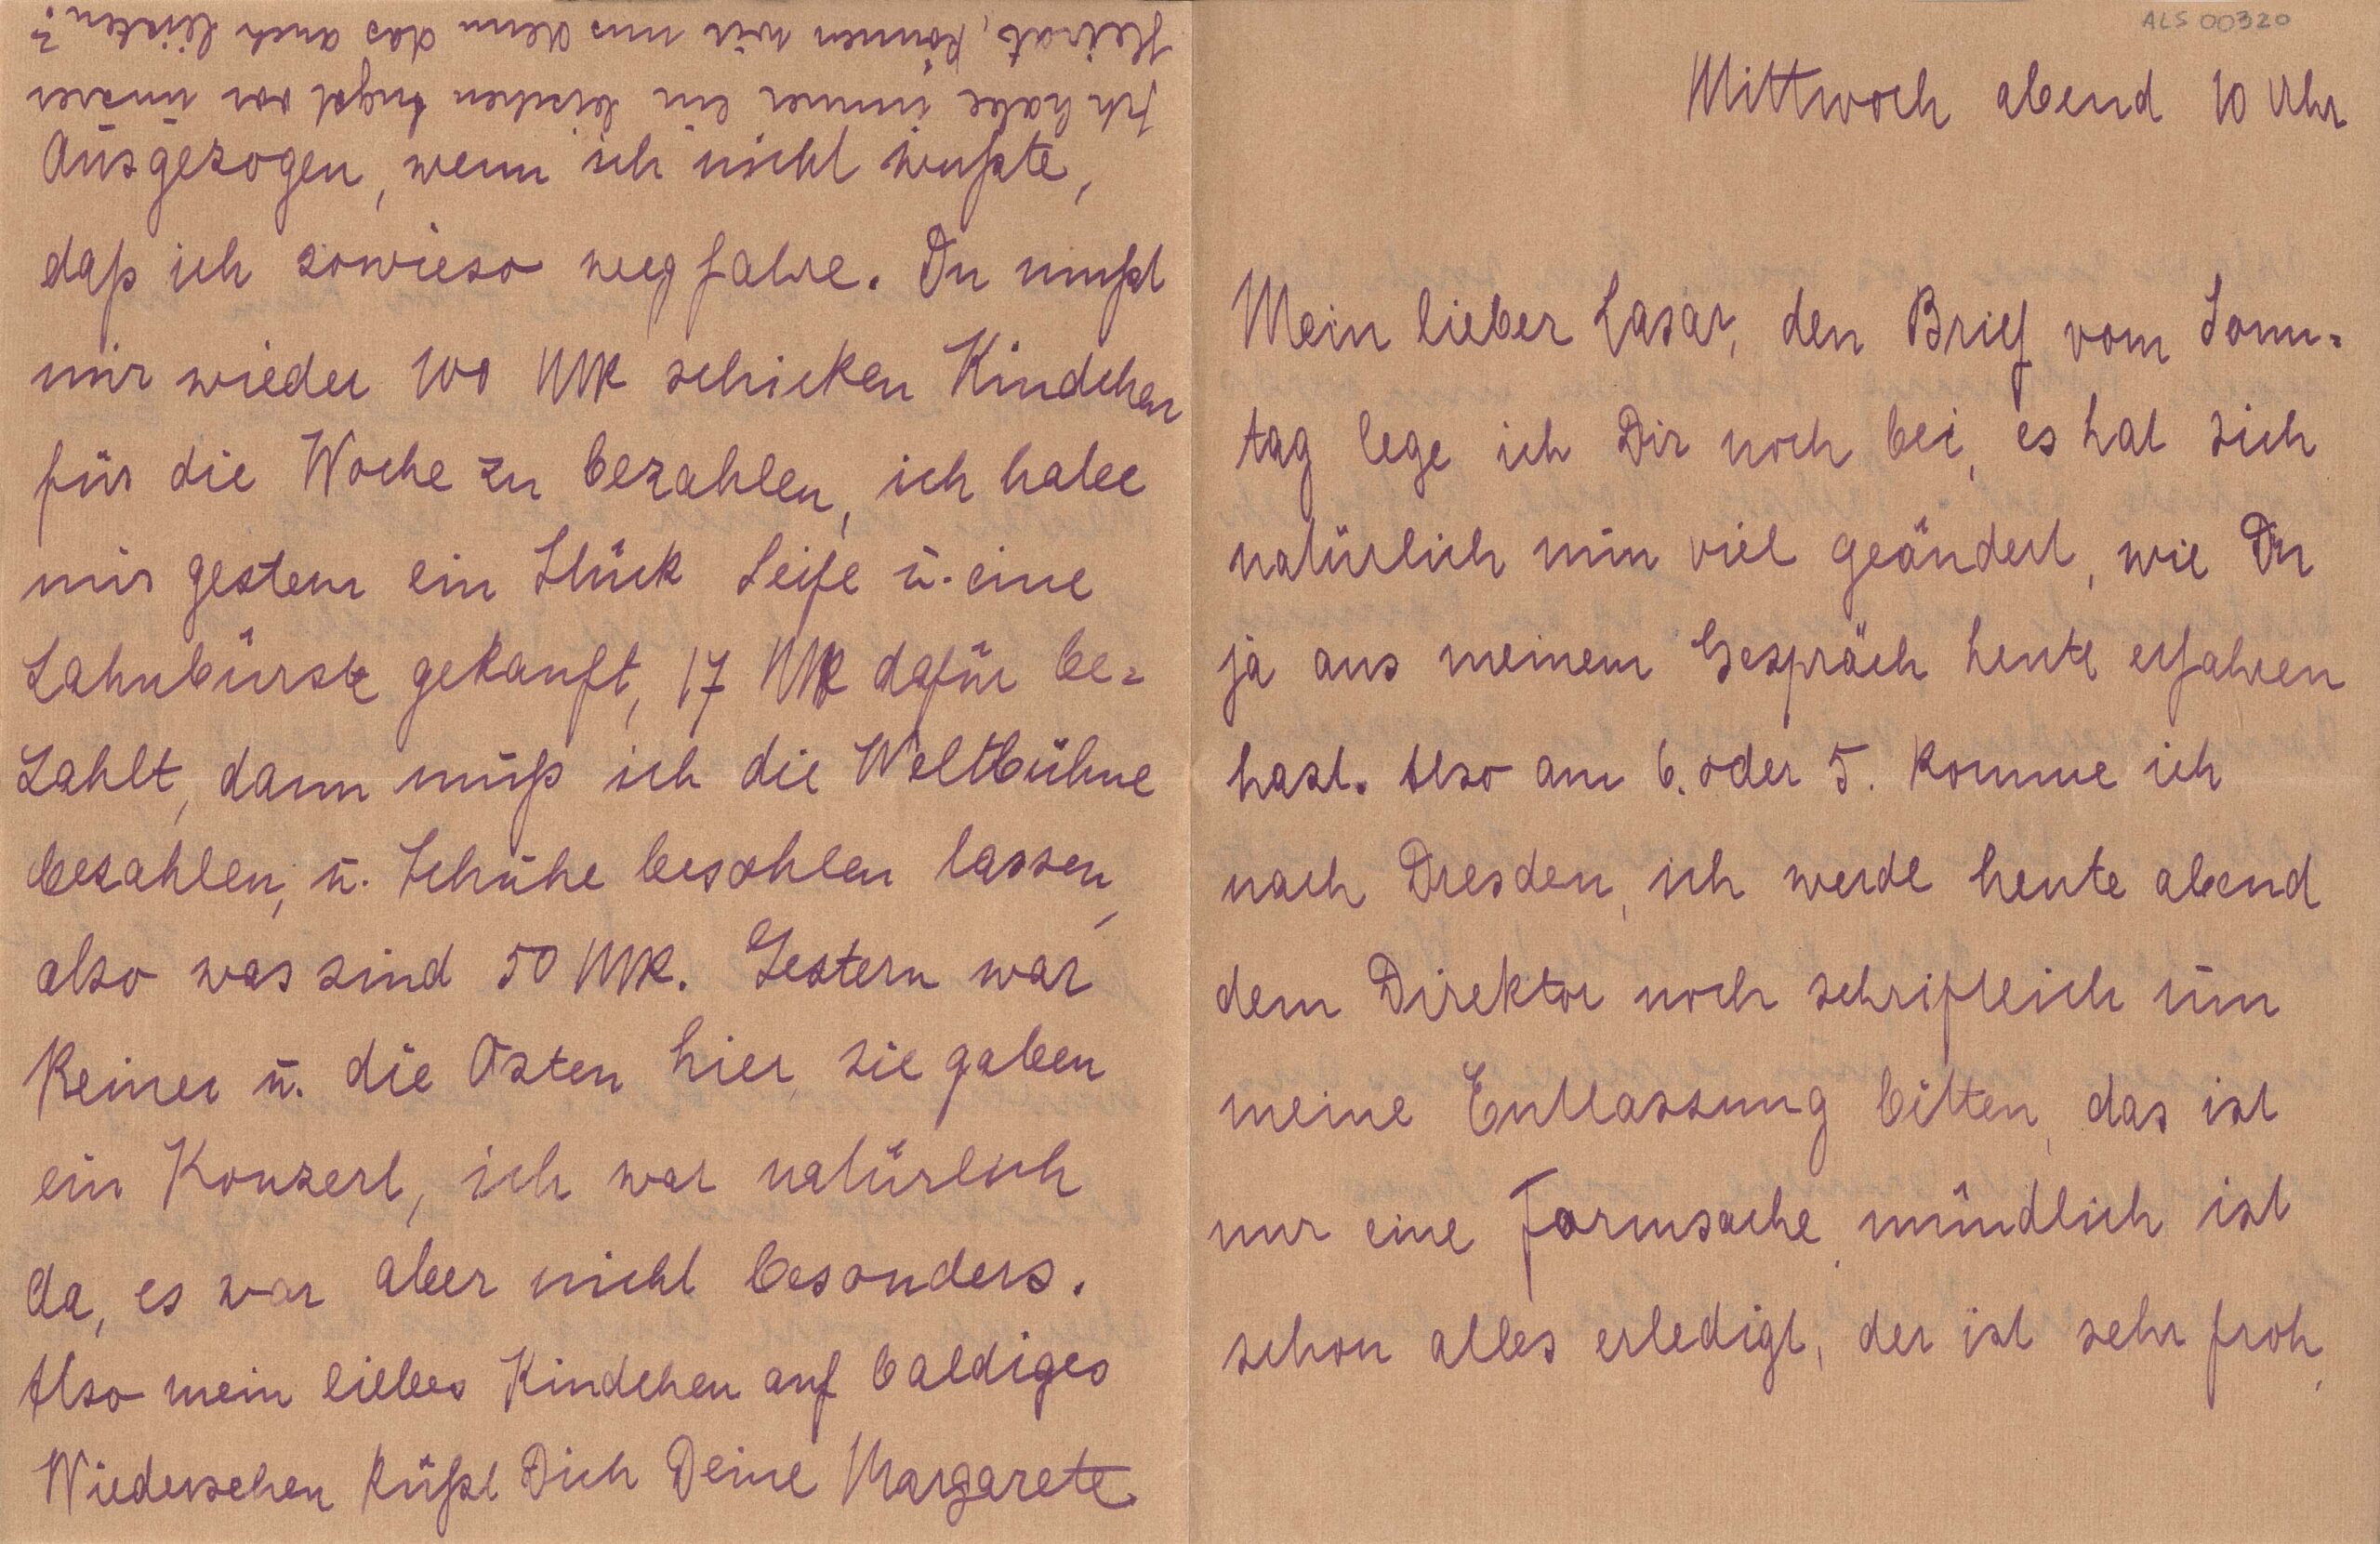 ALS 00320
Mittwoch abend 10 Uhr
Mein lieber Lasar, den Brief vom Sonn-
tag lege ich Dir noch bei, es hat sich
natürlich nun viel geändert, wie Du
ja aus meinem Gespräch heute erfahren
hast. Also am 6. oder 5. komme ich
nach Dresden, ich werde heute abend
dem Direktor noch schriftlich um
meine Entlassung bitten, das ist
nur eine Formsache, mündlich ist
schon alles erledigt, der ist sehr froh,
Ausgezogen, wenn ich nicht wußte,
daß ich sowieso wegfahre. Du mußt
mir wieder 100 MK schicken Kindchen
für die Woche zu bezahlen, ich habe
mir gestern ein Stück Seife u. eine
Zahnbürste gekauft, 17 MK dafür be-
zahlt, dann muß ich die Weltbühne
bezahlen, u. Schuhe besohlen lassen,
also was sind 50 MK. Gestern war
Reiner u. die Osten hier, sie gaben
ein Konzert, ich war natürlich
da, es war aber nicht besonders.
Also mein liebes Kindchen auf baldiges
Wiedersehen küßt Dich Deine Margarete
Ich habe immer ein bischen Angst vor unsrer
Heirat, können wir uns denn das auch leisten?